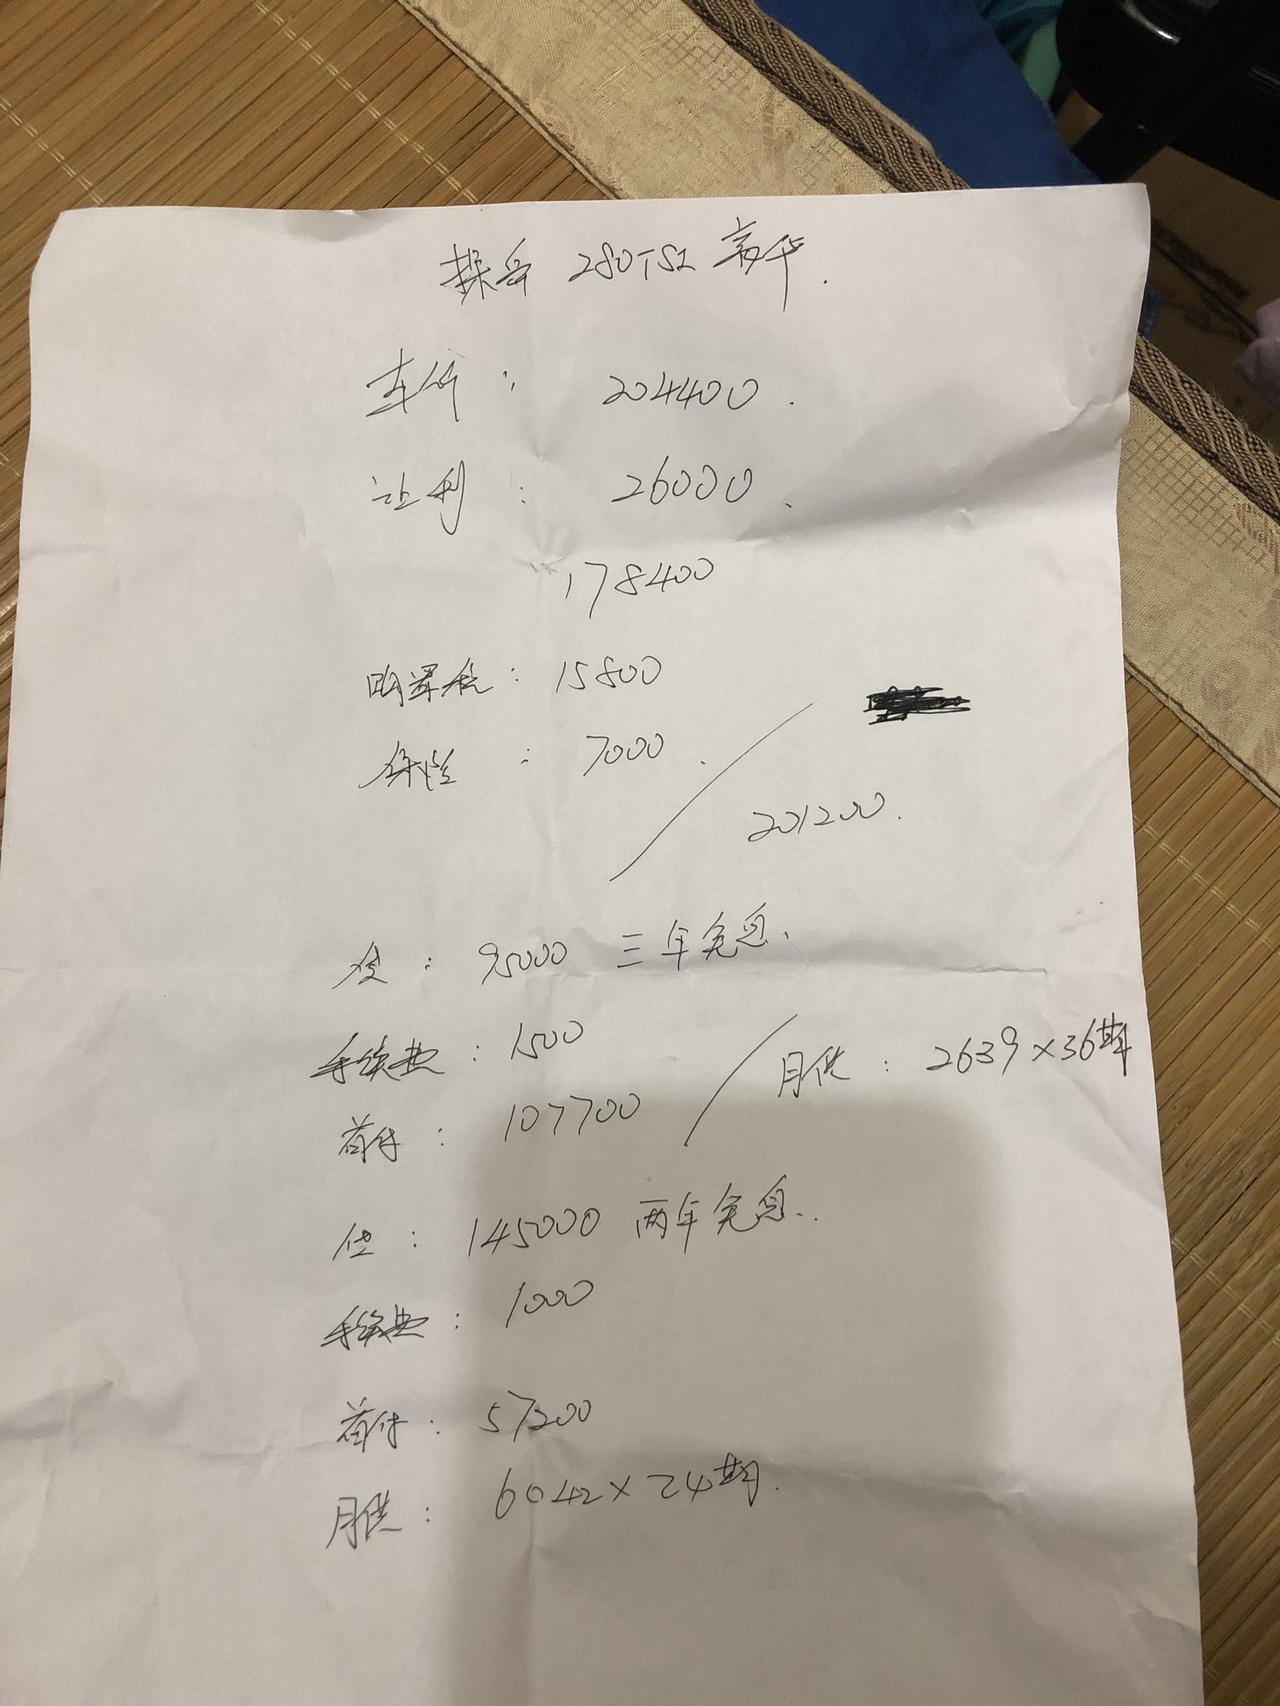 探岳 280TSI 豪华.
车价: 204400.
让利: 26000.
178400
购置税: 15800
保险: 7000.
201200.
贷: 95000 三年免息.
手续费: 1500
月供: 2639×36期
首付: 107700
贷: 145000 两年免息.
手续费: 1000
首付: 57200
月供: 6042×24期.